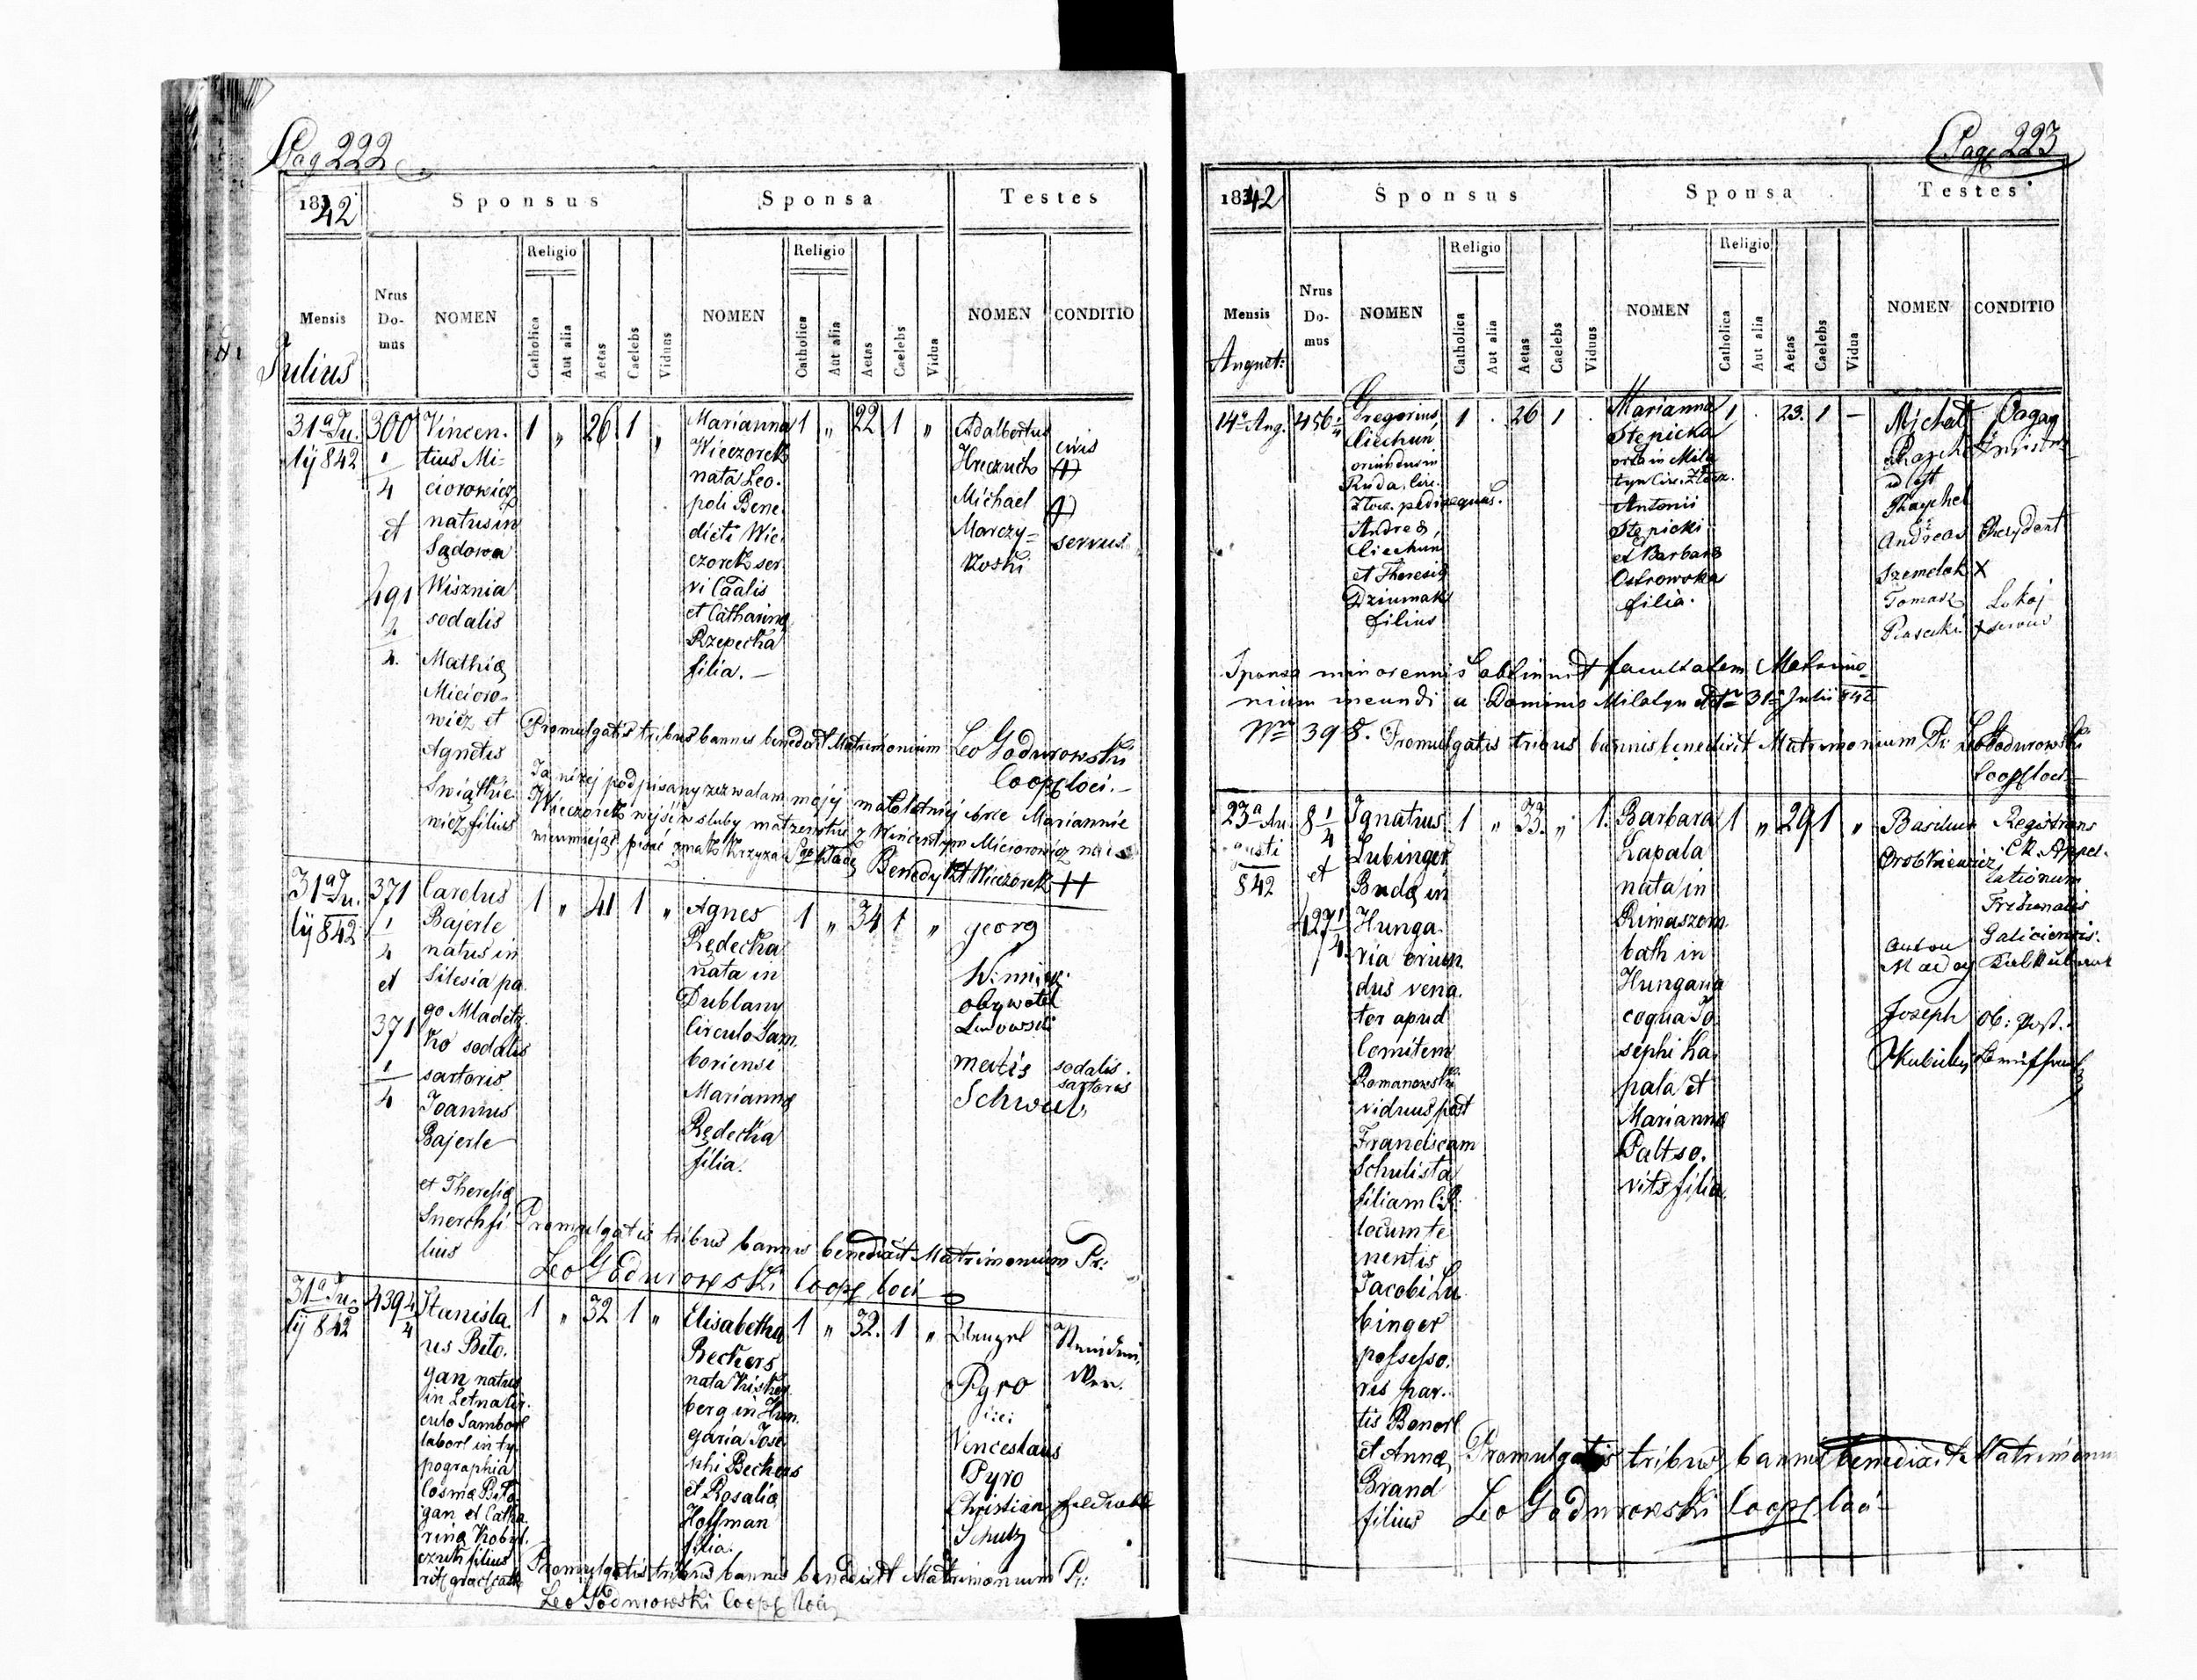 Pag 222
1842
Sponsus
Sponsa
Testes
Mensis
Julius
Nrus
Do-
mus
NOMEN
Religio
Catholica
Aut alia
Aetas
Caelebs
Viduus
NOMEN
Religio
Catholica
Aut alia
Aetas
Caelebs
Vidua
NOMEN
CONDITIO
31a Ju.
lÿ 842
300
1
4
et
491
2
4.
Vincen.
tius Mi-
ciorowicz
natus in
Sądowa
Wisznia
sodalis
Mathiæ
Micioro-
wicz et
Agnetis
Swiątkie
wicz filius
1 „ 26 1 „
Marianna
Wieczorek
nata Leo.
poli Bene.
dicti Wie
czorek ser
vi Caalis
et Catharinæ
Rzepecka
filia. —
1 „ 22 1 „
Adalbertus
Hreczuch
civis
Michael
Marczy-
koski
servus
Promulgatis tribus bannis benedixit Matrimonium Leo Godurowski
Coop loci. —
Ja niżej podpisany zezwalam mojej małoletniej corce Mariannie
Wieczorek wejść w sluby małzenstwa z Wincentym Miciorowicz
nieumiejąc pisać znak krzyza S. kładę Benedykt Wieczorek ++
31a Ju.
lÿ 842
371
1
4
et
371
1
4
Carolus
Bajerle
natus in
Silesia pa.
go Mladetz.
ko sodalis
sartoris
Joannis
Bajerle
et Theresiæ
Snerch fi
lius
1 „ 41 1 „
Agnes
Redecka
nata in
Dublany
Circulo Sam.
boriensi
Marianna
Redecka
filia.
1 „ 34 1 „
Georg
obywatel
Lwowski
matis
Schwul
sodalis.
sartoris
Promulgatis tribus bannis benedixit Matrimonium Pr:
Leo Godurowski Coop loci
31a Ju.
lÿ 842
439 4/4
Stanisla
us Bito.
gan natus
in Letnia Cir.
culo Sambor
labor in ty
pographia
Cosmæ Bito
gan et Catha
rinæ Kobyl.
czuk filius
1 „ 32 1 „
Elisabetha
Beckers
nata Kisker
berg in Hun.
garia Jose
phi Beckers
et Rosaliæ
Hoffman
filia.
1 „ 32. 1 „
Wenzel
Pyro
Venceslaus
Pyro
Christian
Schulz
Promulgatis tribus bannis benedixit Matrimonium Pr:
Leo Godurowski Coop loci
Pag 223
1842
Sponsus
Sponsa
Testes
Mensis
August:
Nrus
Do-
mus
NOMEN
Religio
Catholica
Aut alia
Aetas
Caelebs
Viduus
NOMEN
Religio
Catholica
Aut alia
Aetas
Caelebs
Vidua
NOMEN
CONDITIO
14a Aug.
456 4
Gregorius
Ciechun
oriundus in
Ruda Circ.
Złocz. pedissequus.
Andreæ
Ciechun
et Theresiæ
Dziumak
filius
1 . 26 1 .
Marianna
Stepicka
orta in Mila
tyn Circ. Złocz.
Antonii
Stepicki
et Barbaræ
Ostrowska
filia.
1 . 23. 1 —
Michał
id est
Andreas
Szemelak X
Tomasz
Piasecki
Lokaj
X servus
Sponsa minorennis obtinuit facultatem Matrimo
nium ineundi a Dominio Milatyn ddto 31a Julii 842
Nro 398. Promulgatis tribus bannis benedixit Matrimonium Pr. Leo Godurowski
Coop loci —
23a Au.
gusti
842
8 1/4
et
427 1/4
Ignatius
Lubinger
Budæ in
Hunga.
ria oriun
dus vena.
tor apud
Comitem
Romanowski
viduus post
Franciscam
Schulista
filiam C.R.
locum te
nentis
Jacobi Lu
binger
possesso.
ris par.
tis Bonorl
et Annæ
Brand
filius
1 „ 33. „ 1.
Barbara
Lapala
nata in
Rimaszom.
bath in
Hungaria
coqua Jo.
sephi La.
pala et
Mariannæ
Paltso.
vits filia
1 „ 29 1 „
Basilius
Registrans
C.R. Appel.
lationum
Tribunalis
Galiciensis.
Anton
Joseph
Kubicky
Promulgatis tribus bannis benedixit Matrimonium
Leo Godurowski Coop loci